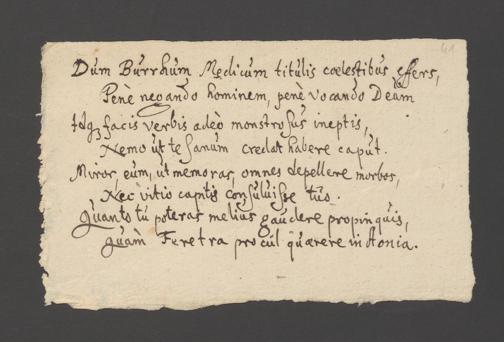 41
Dum Burrhum Medicum titulis cœlestibus effers,
Penè negando hominem, penè vocando Deum
Idq; facis verbis adeò monstrosus ineptis,
Nemo ut te sanum credat habere caput.
Miror, eum, ut memoras, omnes depellere morbos,
Nec vitio captis consuluisse tuis.
Quanto tu poteras melius gaudere propinquis,
Quàm Feretra procul quærere in Aonia.